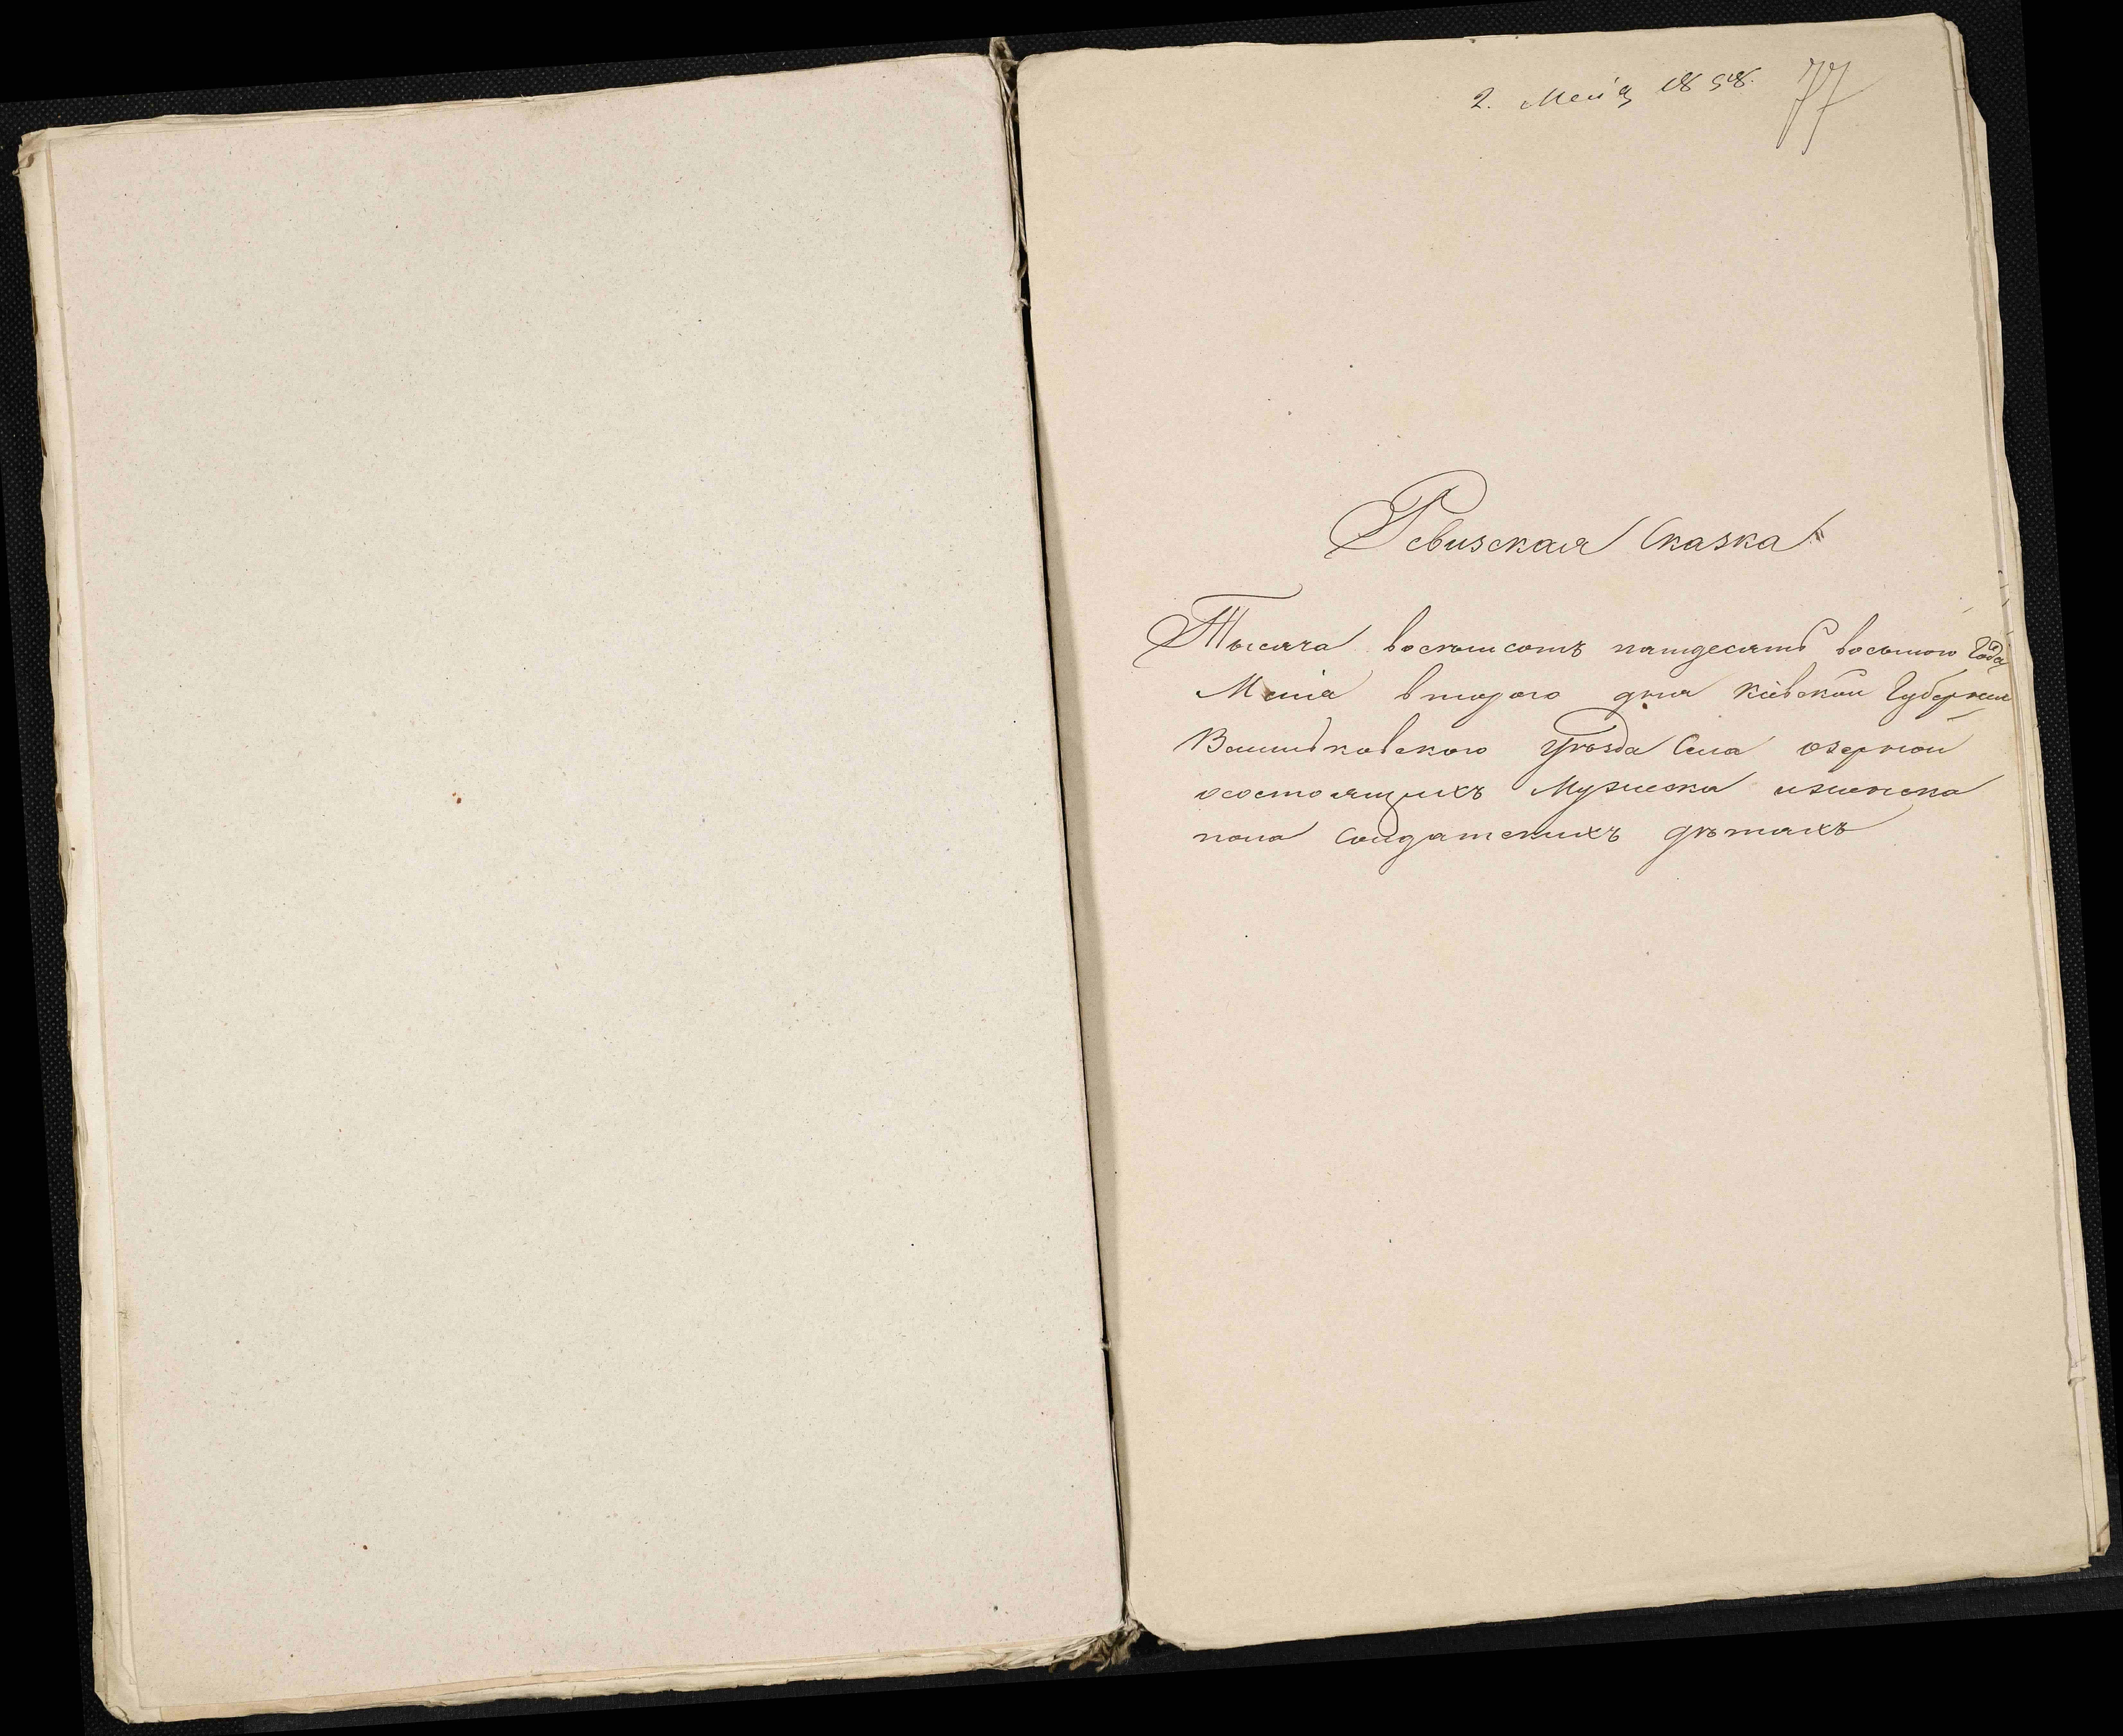 2. Мея 1858.
77
Ревизская Сказка
Тысяча восемсотъ пятдесятъ восьмого Года
Мсія второго дня Кіевской Губерніи
Васильковского Уѣзда Села Озерной
осостоящихъ Мужеска иженска
пола Солдатскихъ дѣтахъ